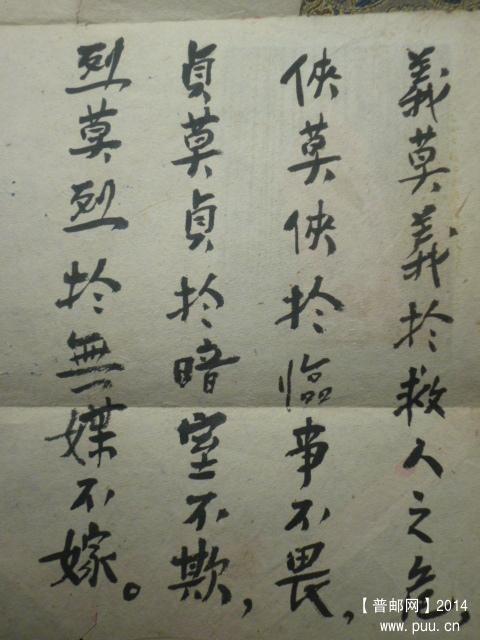 義莫義於救人之危,
俠莫俠於臨事不畏,
貞莫貞於暗室不欺,
烈莫烈於無媒不嫁。
【普邮网】2014
www.puu.cn